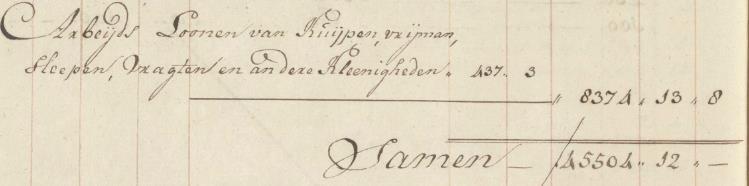 Arbeijds Loonen van Kuijpen, vrijman,
sleepen, Vragten en andere Kleenigheden „ 437 „ 3
„ 8374 „ 13 „ 8
Samen — / 45504 „ 12 „ —